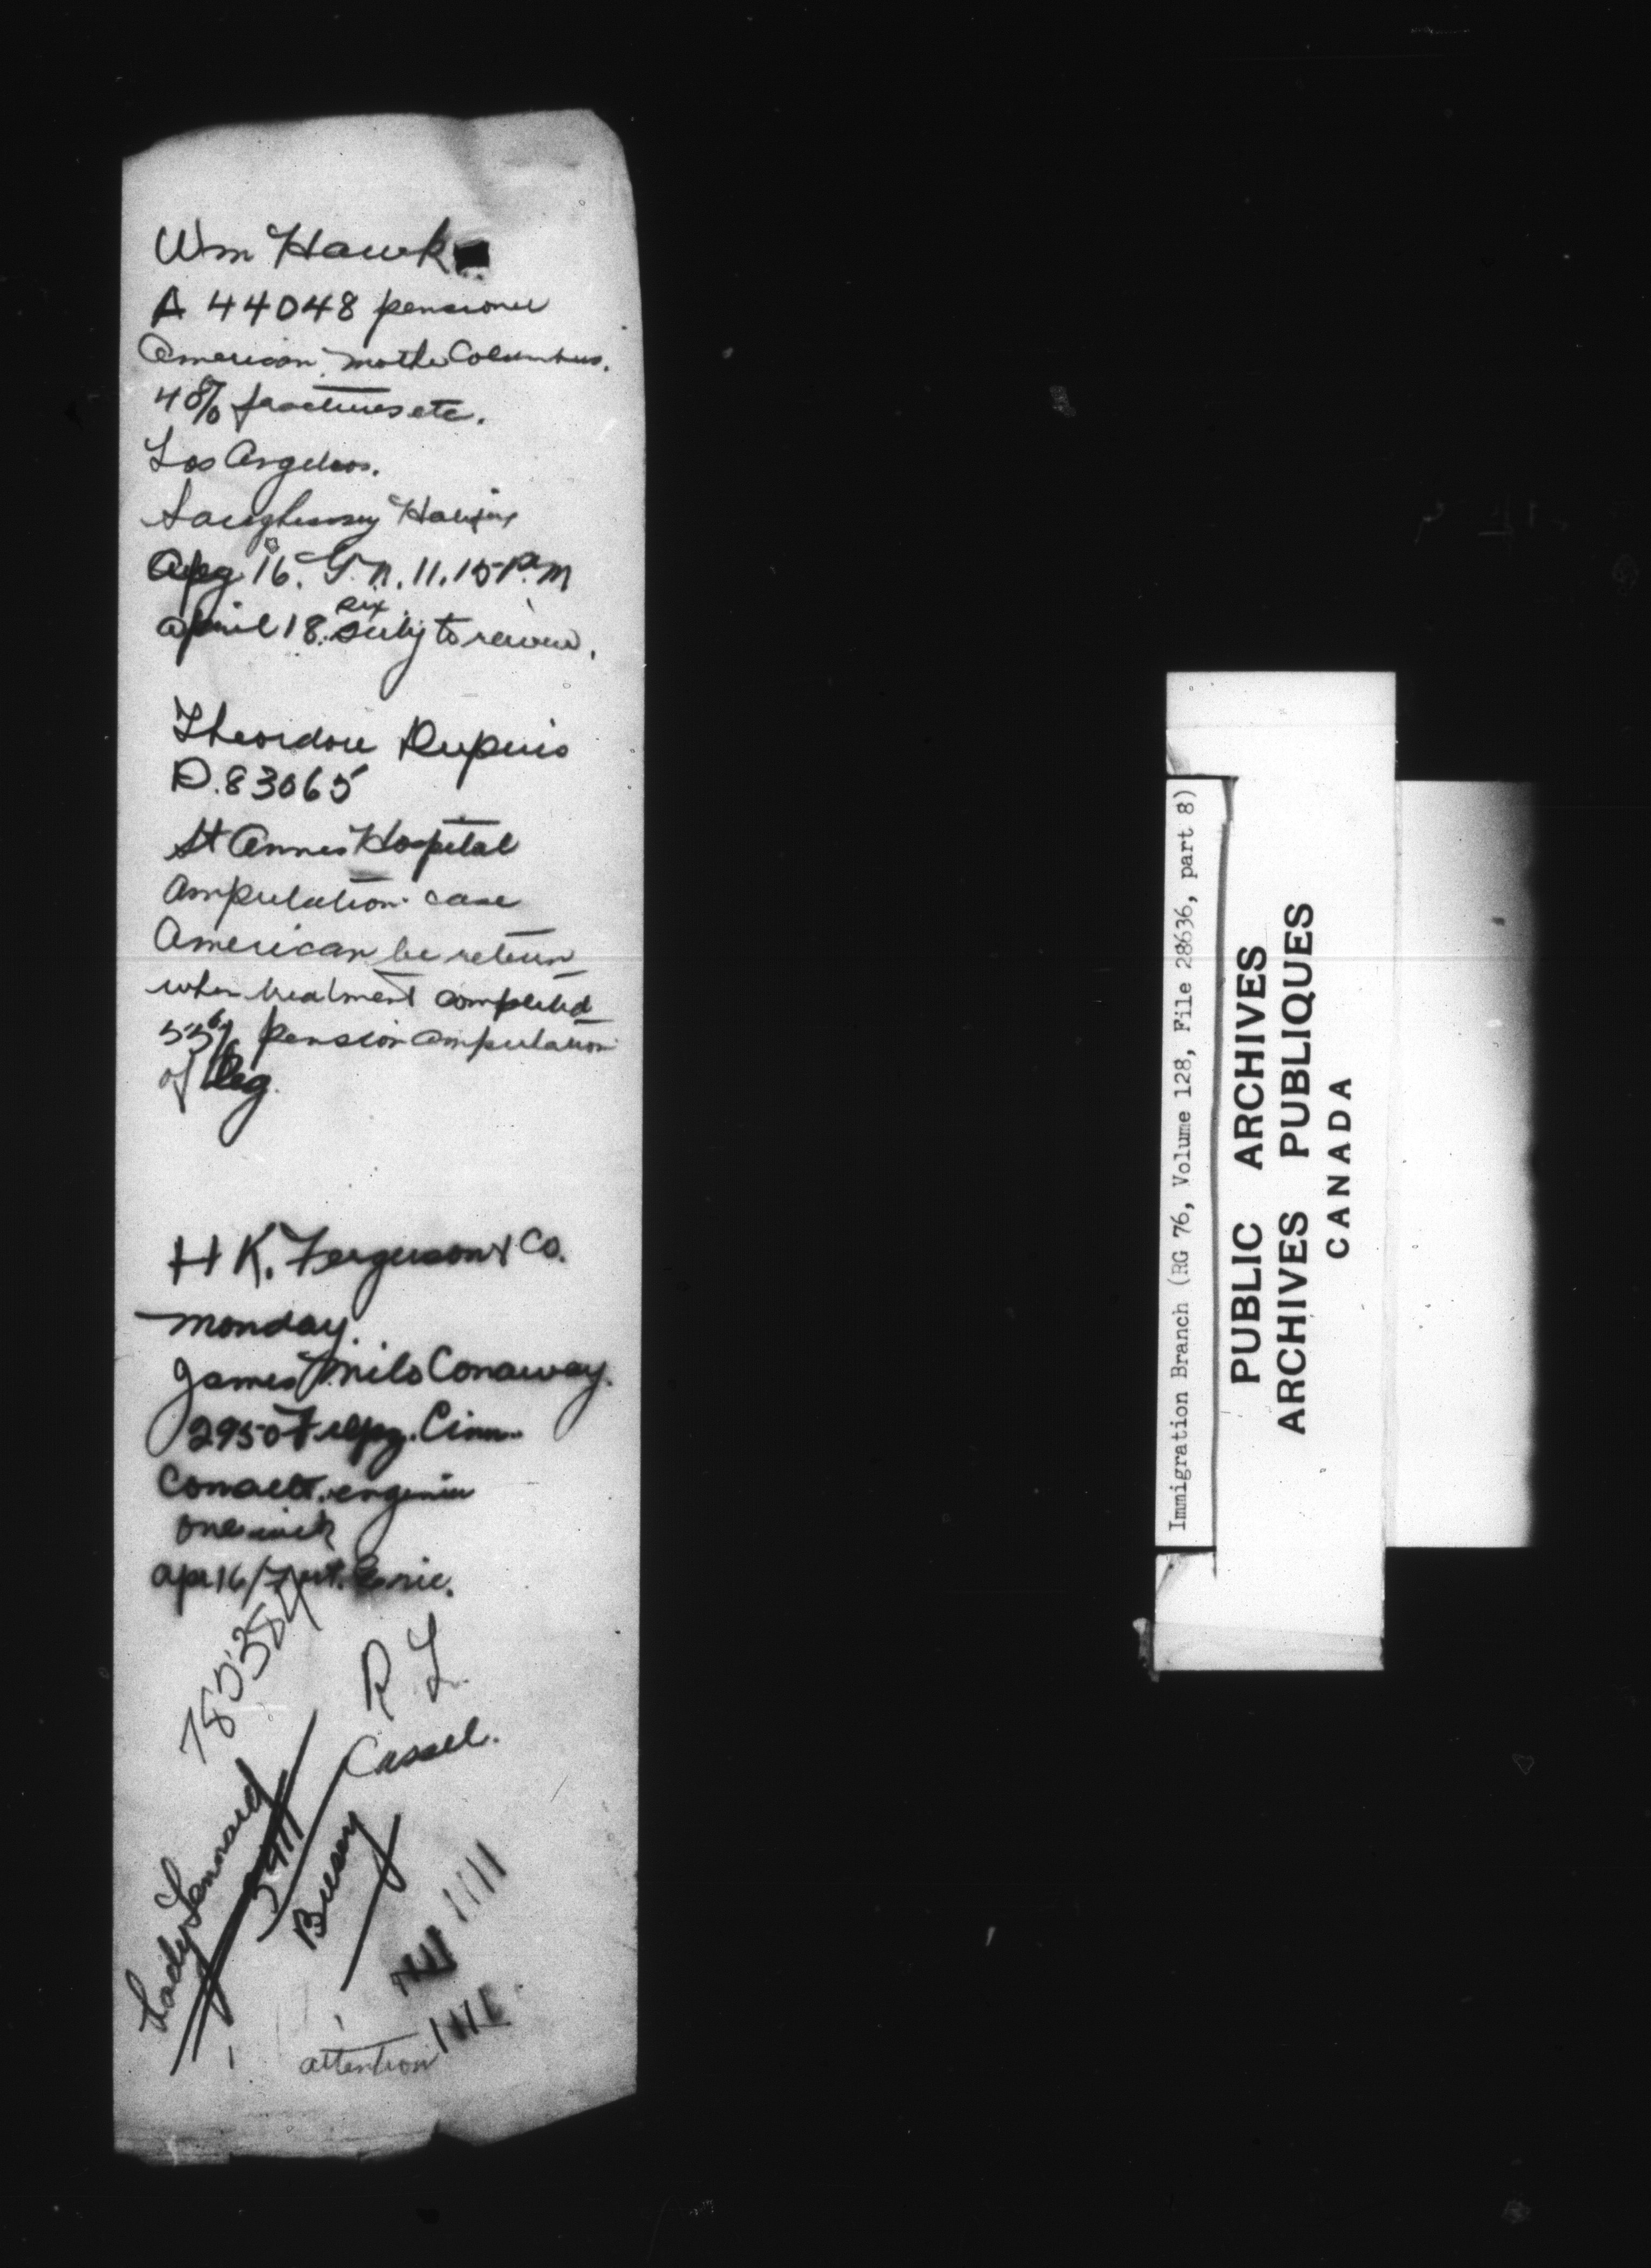 Wm Hawk
A 44048 pensioner
American. mother Columbus.
40% fractures etc.
Los Angeles.
Halifax
16. G.N. 11.15 P.M
April 18. six to
Theordore Dupuis
D.83065
St Annes Hospital
Amputation case
American be return
when treatment completed
55% pension amputation
of leg.
H K. Ferguson & Co.
Monday.
James Milo Conaway.
2950 Cinn.
engineer
one
Apr 16/ Fort Erie.
785384
R L
Cassel.
Lady Lennard
Busey
attention
Immigration Branch (RG 76, Volume 128, File 28636, part 8)
PUBLIC ARCHIVES
ARCHIVES PUBLIQUES
CANADA